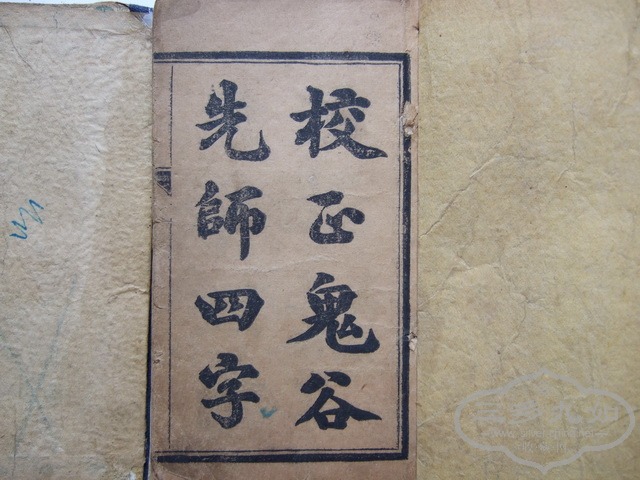 校正鬼谷
先師四字